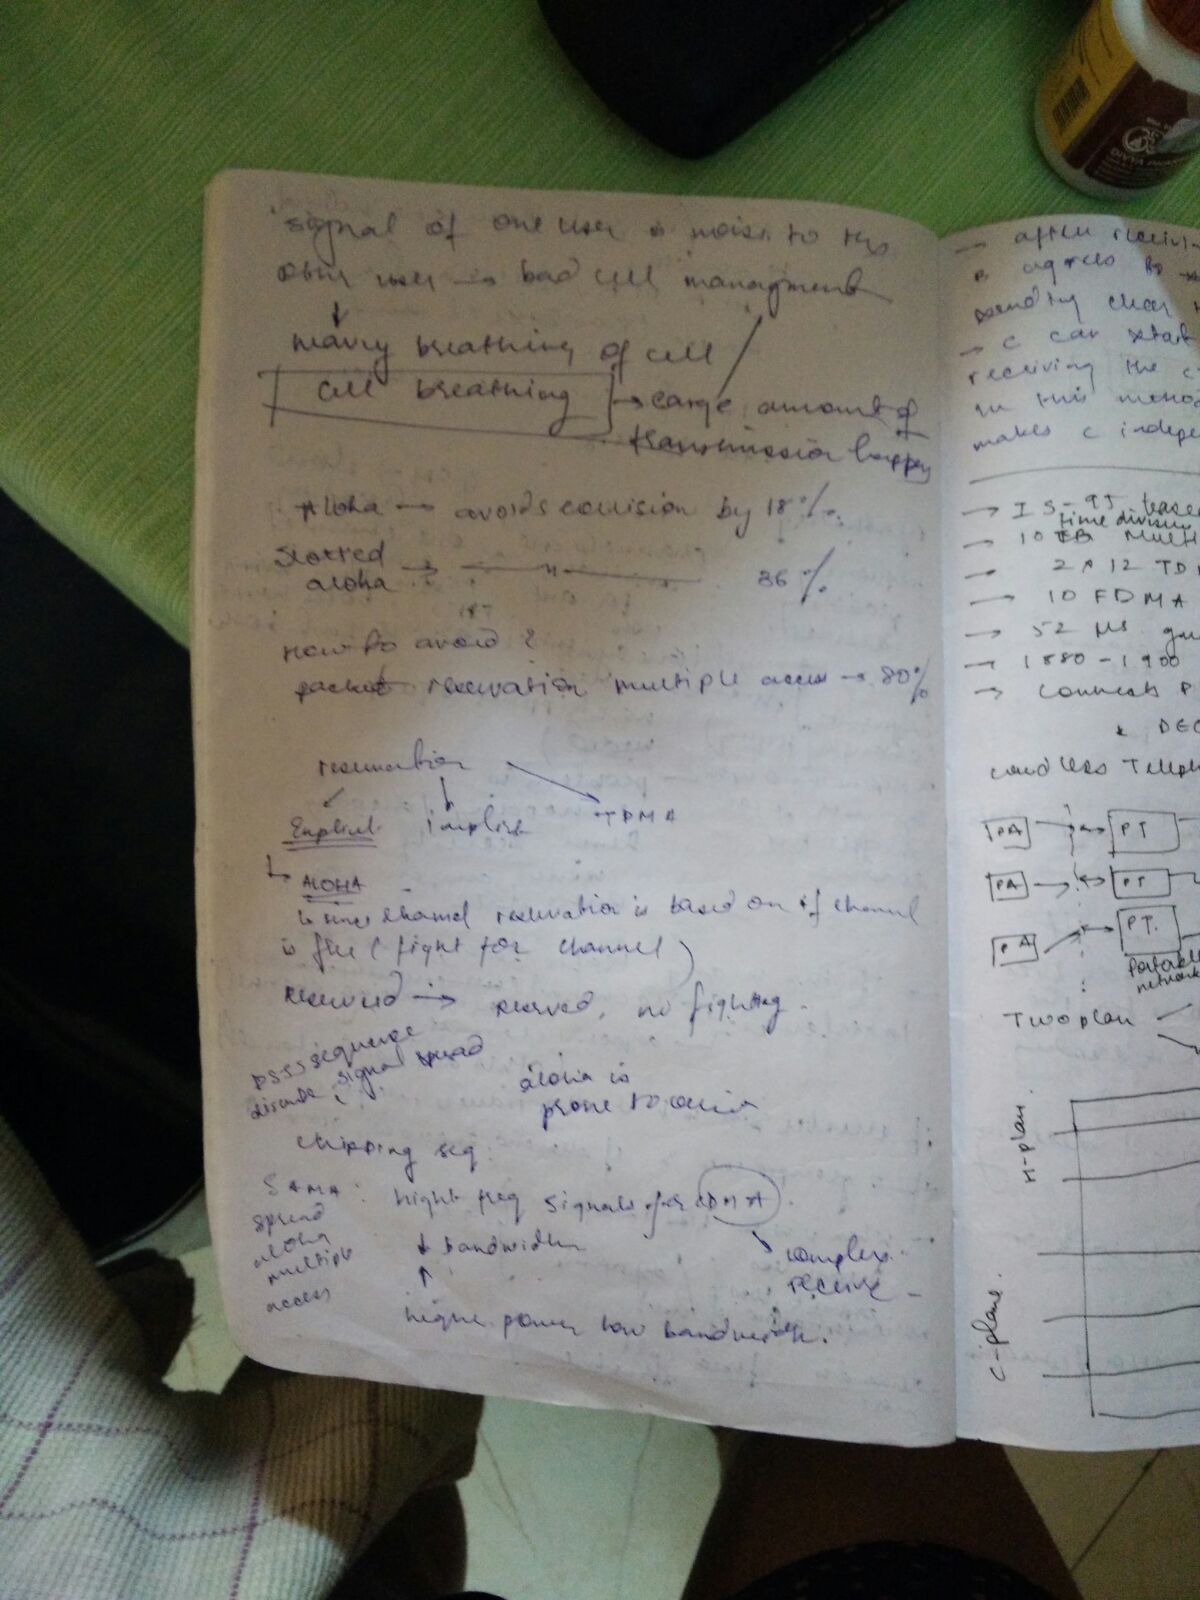 signal of one user is noise to the
other user → bad cell managment
↓
many breathing of cell
cell breathing → large amount of
transmission happen
Aloha → avoids collision by 18%.
Slotted
aloha → —— 11 —— 36%
How to avoid?
packet reservation multiple access → 80%
reservation
Explicit implicit TDMA
↳ ALOHA
↳ since channel reservation is based on if channel
is free (fight for channel)
reserved → reserved, no fighting.
DSSS sequence
signal spread
aloha is
prone to
chipping seq:
SAMA: hight freq signals for CDMA.
spread
aloha
multiple
access
↓ bandwidth
↑
complex
receive -
higher power low bandwidth.
→ after receivi
agrees to
clear
→ C can start
receiving the
in this
makes C indepe
→ IS-95
time division
→ 10
→ 2 12 TD
→ 10 FDMA
→ 52 µs
→ 1880-1900
→ connects P
* DEC
cordless Teleph
PA → PT
PA → PT
PA → PT.
Portable
network
Two plan
M-plan.
C-plane.
DIVYA